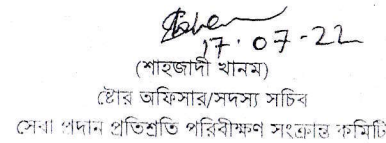 17.07-22
(শাহজাদী খানম)
ষ্টোর অফিসার/সদস্য সচিব
সেবা প্রদান প্রতিশ্রুতি পরিবীক্ষণ সংক্রান্ত কমিটি